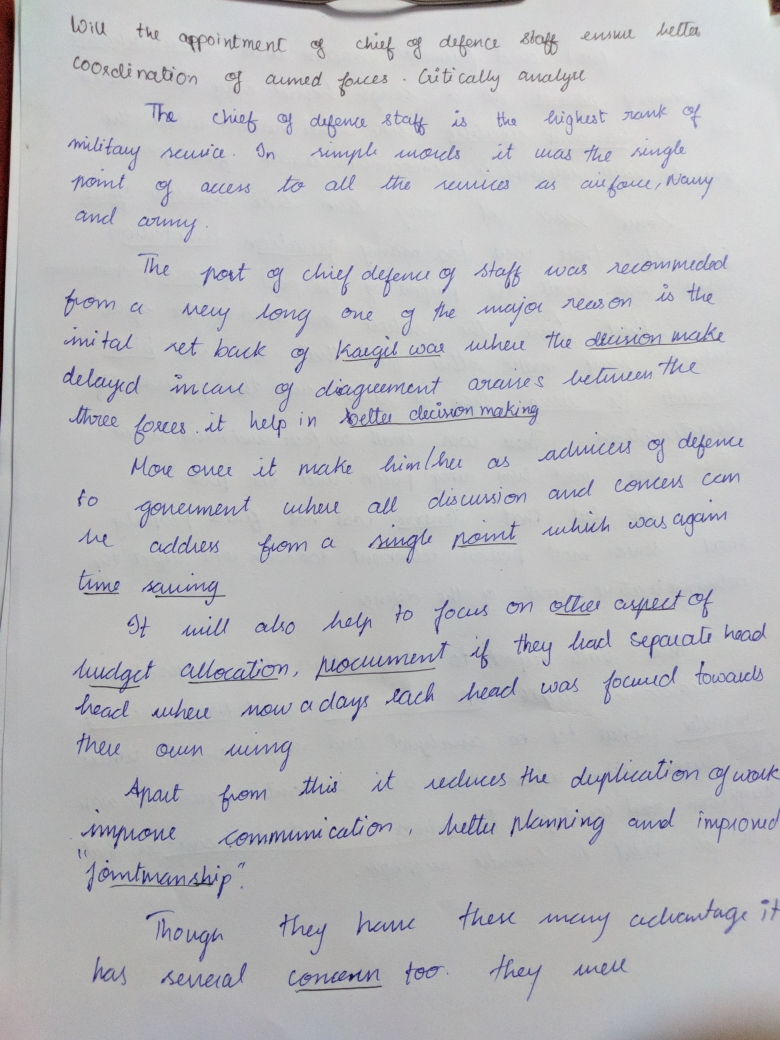 Will the appointment of chief of defence staff ensure better
coordination of armed forces. Critically analyse
The chief of defence staff is the highest rank of
military service. In simple words it was the single
point of access to all the services as airforce, Navy
and army.
The post of chief defence of staff was recommeded
from a very long one of the major reason is the
inital set back of Kargil war where the decision make
delayed incase of diagreement araises between the
three forces. it help in better decision making
More over it make him/her as advicers of defence
to goverment where all discussion and concers can
be address from a single point which was again
time saving
It will also help to focus on other aspect of
budget allocation, procurment if they had separate head
head where now a days each head was focused towards
there own wing
Apart from this it reduces the duplication of work
improve communication, better planning and improved
"Jointmanship".
Though they have these many advantage it
has several concern too. they were